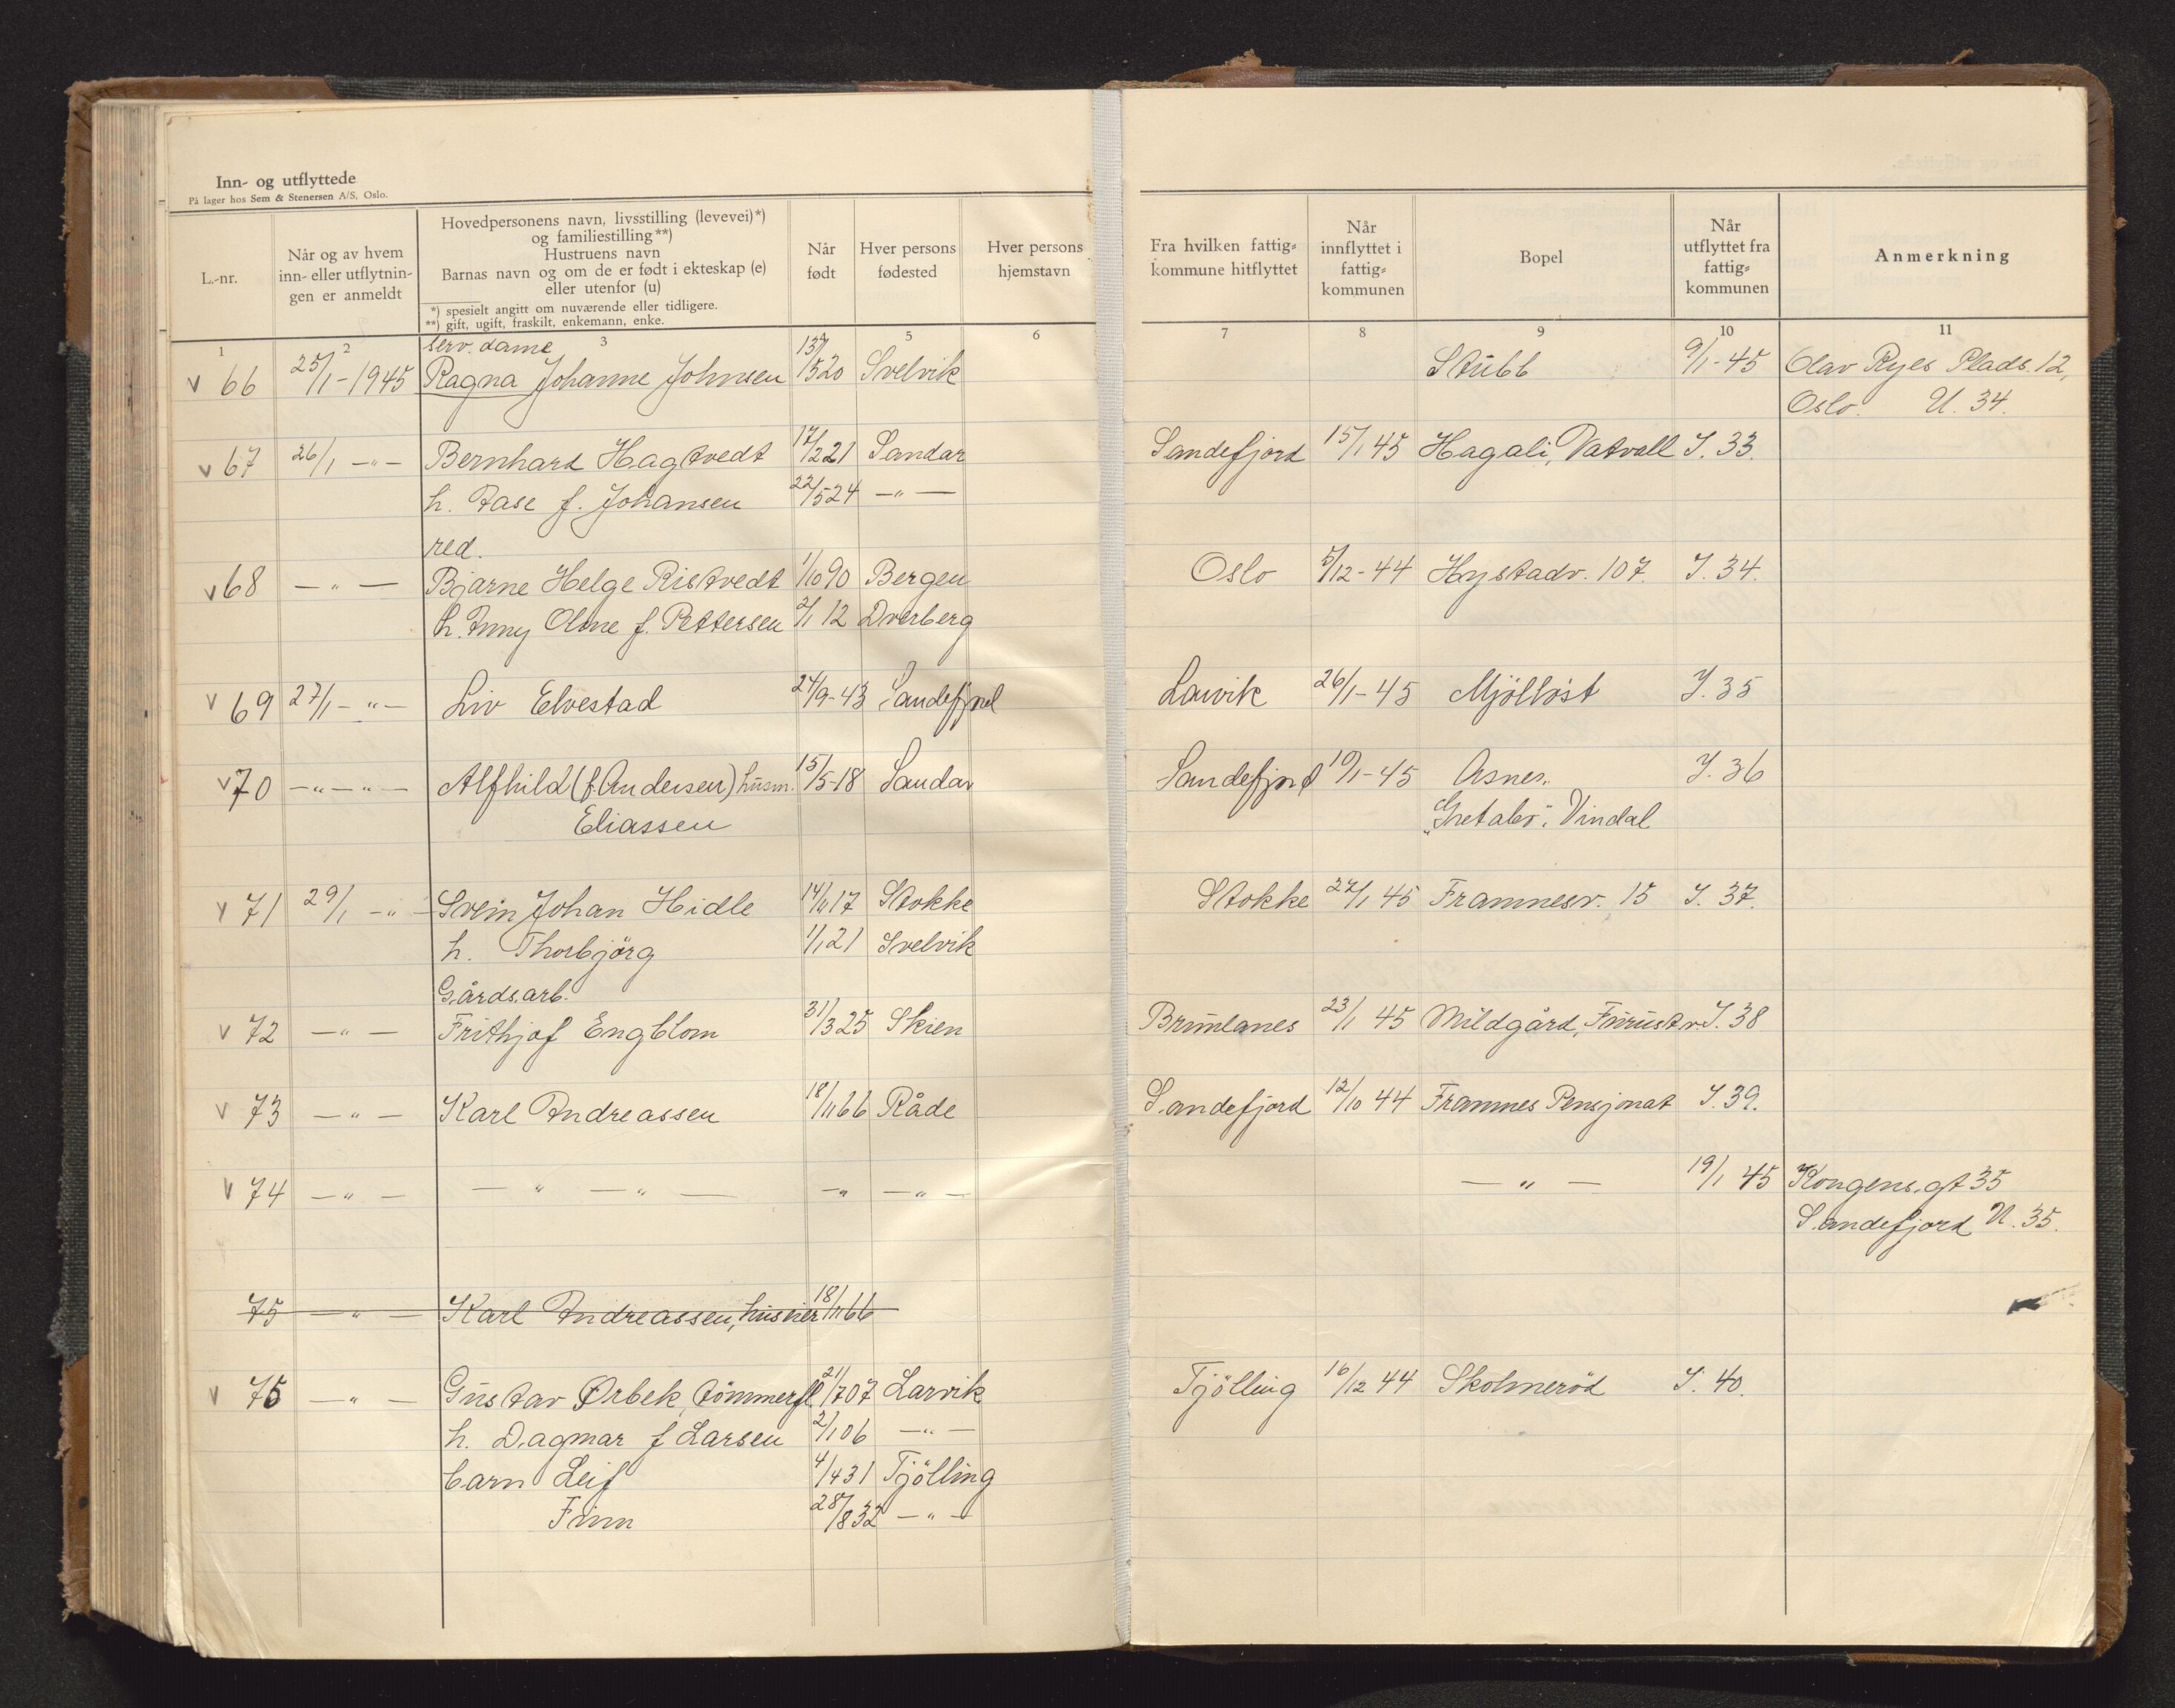 Inn- og utflyttede
På lager hos Sem & Stenersen A/S, Oslo.
L.-nr.
Når og av hvem inn- eller utflytnin- gen er anmeldt
Hovedpersonens navn, livsstilling (levevei)*)
og familiestilling**)
Hustruens navn
Barnas navn og om de er født i ekteskap (e)
eller utenfor (u)
*) spesielt angitt om nuværende eller tidligere.
**) gift, ugift, fraskilt, enkemann, enke.
Når født
Hver persons fødested
Hver persons hjemstavn
Fra hvilken fattig- kommune hitflyttet
Når innflyttet i fattig- kommunen
Bopel
Når utflyttet fra fattig- kommunen
Anmerkning
1 2 3 5 6 7 8 9 10 11
serv. dame
v 66 25/1-1945 Ragna Johanne Johnsen 13/5 20 Svelvik Stubb 9/1-45 Olav Ryes Plads 12,
Oslo. U. 34.
v 67 26/1 -"- Bernhard Hagtvedt 17/2 21 Sandar Sandefjord 15/1 45 Hagali, Vatvall I. 33.
h. Aase f. Johansen 22/5 24 -"-
red.
v 68 -"- Bjarne Helge Ristvedt 1/10 90 Bergen Oslo 5/12-44 Hystadv. 107. I. 34.
h. Anny Oline f. Pettersen 2/1 12 Dverberg
v 69 27/1 -"- Liv Elvestad 24/9-43 Sandefjord Larvik 26/1-45 Mjölløst I. 35
v 70 -"-"- Alfhild (f. Andersen) husm. 15/5-18 Sandar Sandefjord 10/1-45 Asnes. I. 36
Eliassen "Gretabo". Vindal
v 71 29/1 -"- Svein Johan Hidle 14/11 17 Stokke Stokke 27/1 45 Framnesv. 15 I. 37.
h. Thorbjörg 1/1 21 Svelvik
Gårdsarb.
v 72 -"- Frithjof Engblom 31/3 25 Skien Brunlanes 23/1 45 Mildgård, I. 38
v 73 -"- Karl Andreassen 18/11 66 Råde Sandefjord 12/10 44 Framnes Pensjonat I. 39.
v 74 -"- -"-"- -" -"- -"- 19/1 45 Kongens gt 35
Sandefjord U. 35.
75 -"- Karl Andreassen, huseier 18/11 66
v 75 -"- Gustav Ørbek, tömmerfl. 21/7 07 Larvik Tjölling 16/12 44 Skolmeröd I. 40.
h. Dagmar f Larsen 2/1 06 -"-
barn Leif 4/4 31 Tjölling
Finn 28/8 32 -"-